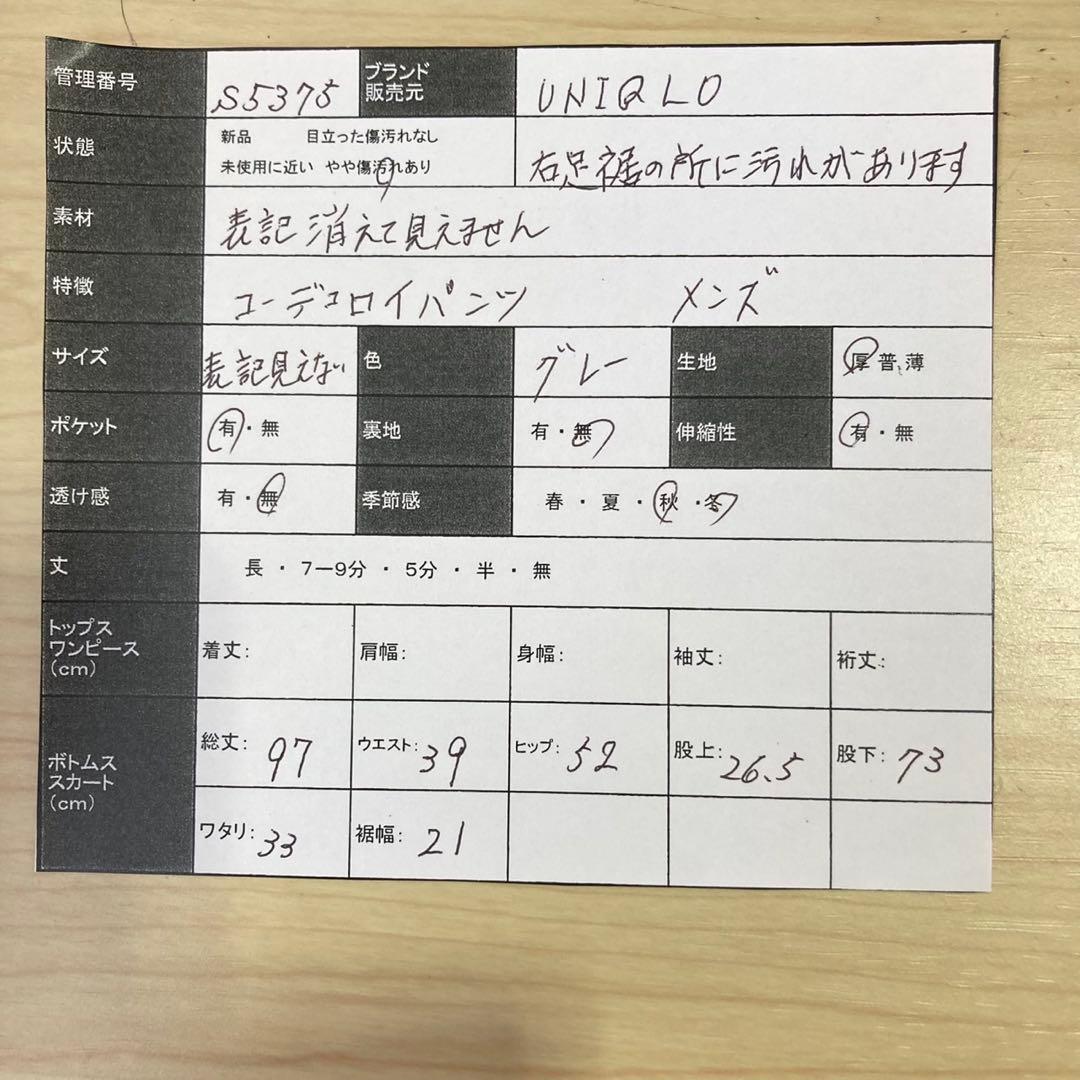 管理番号 S5375 ブランド 販売元 UNIQLO
状態 新品 目立った傷汚れなし
未使用に近い やや傷汚れあり 右足裾の所に汚れがあります
素材 表記消えて見えません
特徴 コーデュロイパンツ メンズ
サイズ 表記見えない 色 グレー 生地 厚・普・薄
ポケット 有・無 裏地 有・無 伸縮性 有・無
透け感 有・無 季節感 春・夏・秋・冬
丈 長・7ー9分・5分・半・無
トップス ワンピース (cm) 着丈: 肩幅: 身幅: 袖丈: 裄丈:
ボトムス スカート (cm) 総丈: 97 ウエスト: 39 ヒップ: 52 股上: 26.5 股下: 73
ワタリ: 33 裾幅: 21